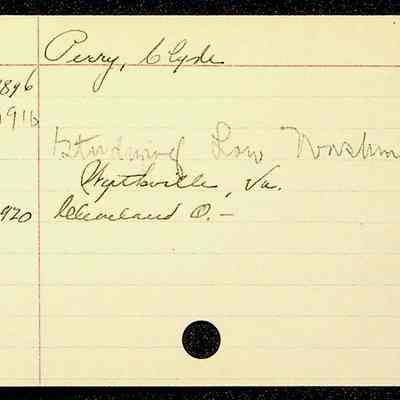 Perry, Clyde
1896
1916
Studying Law Washin
Wytheville, Va.
1920 Cleveland O. –